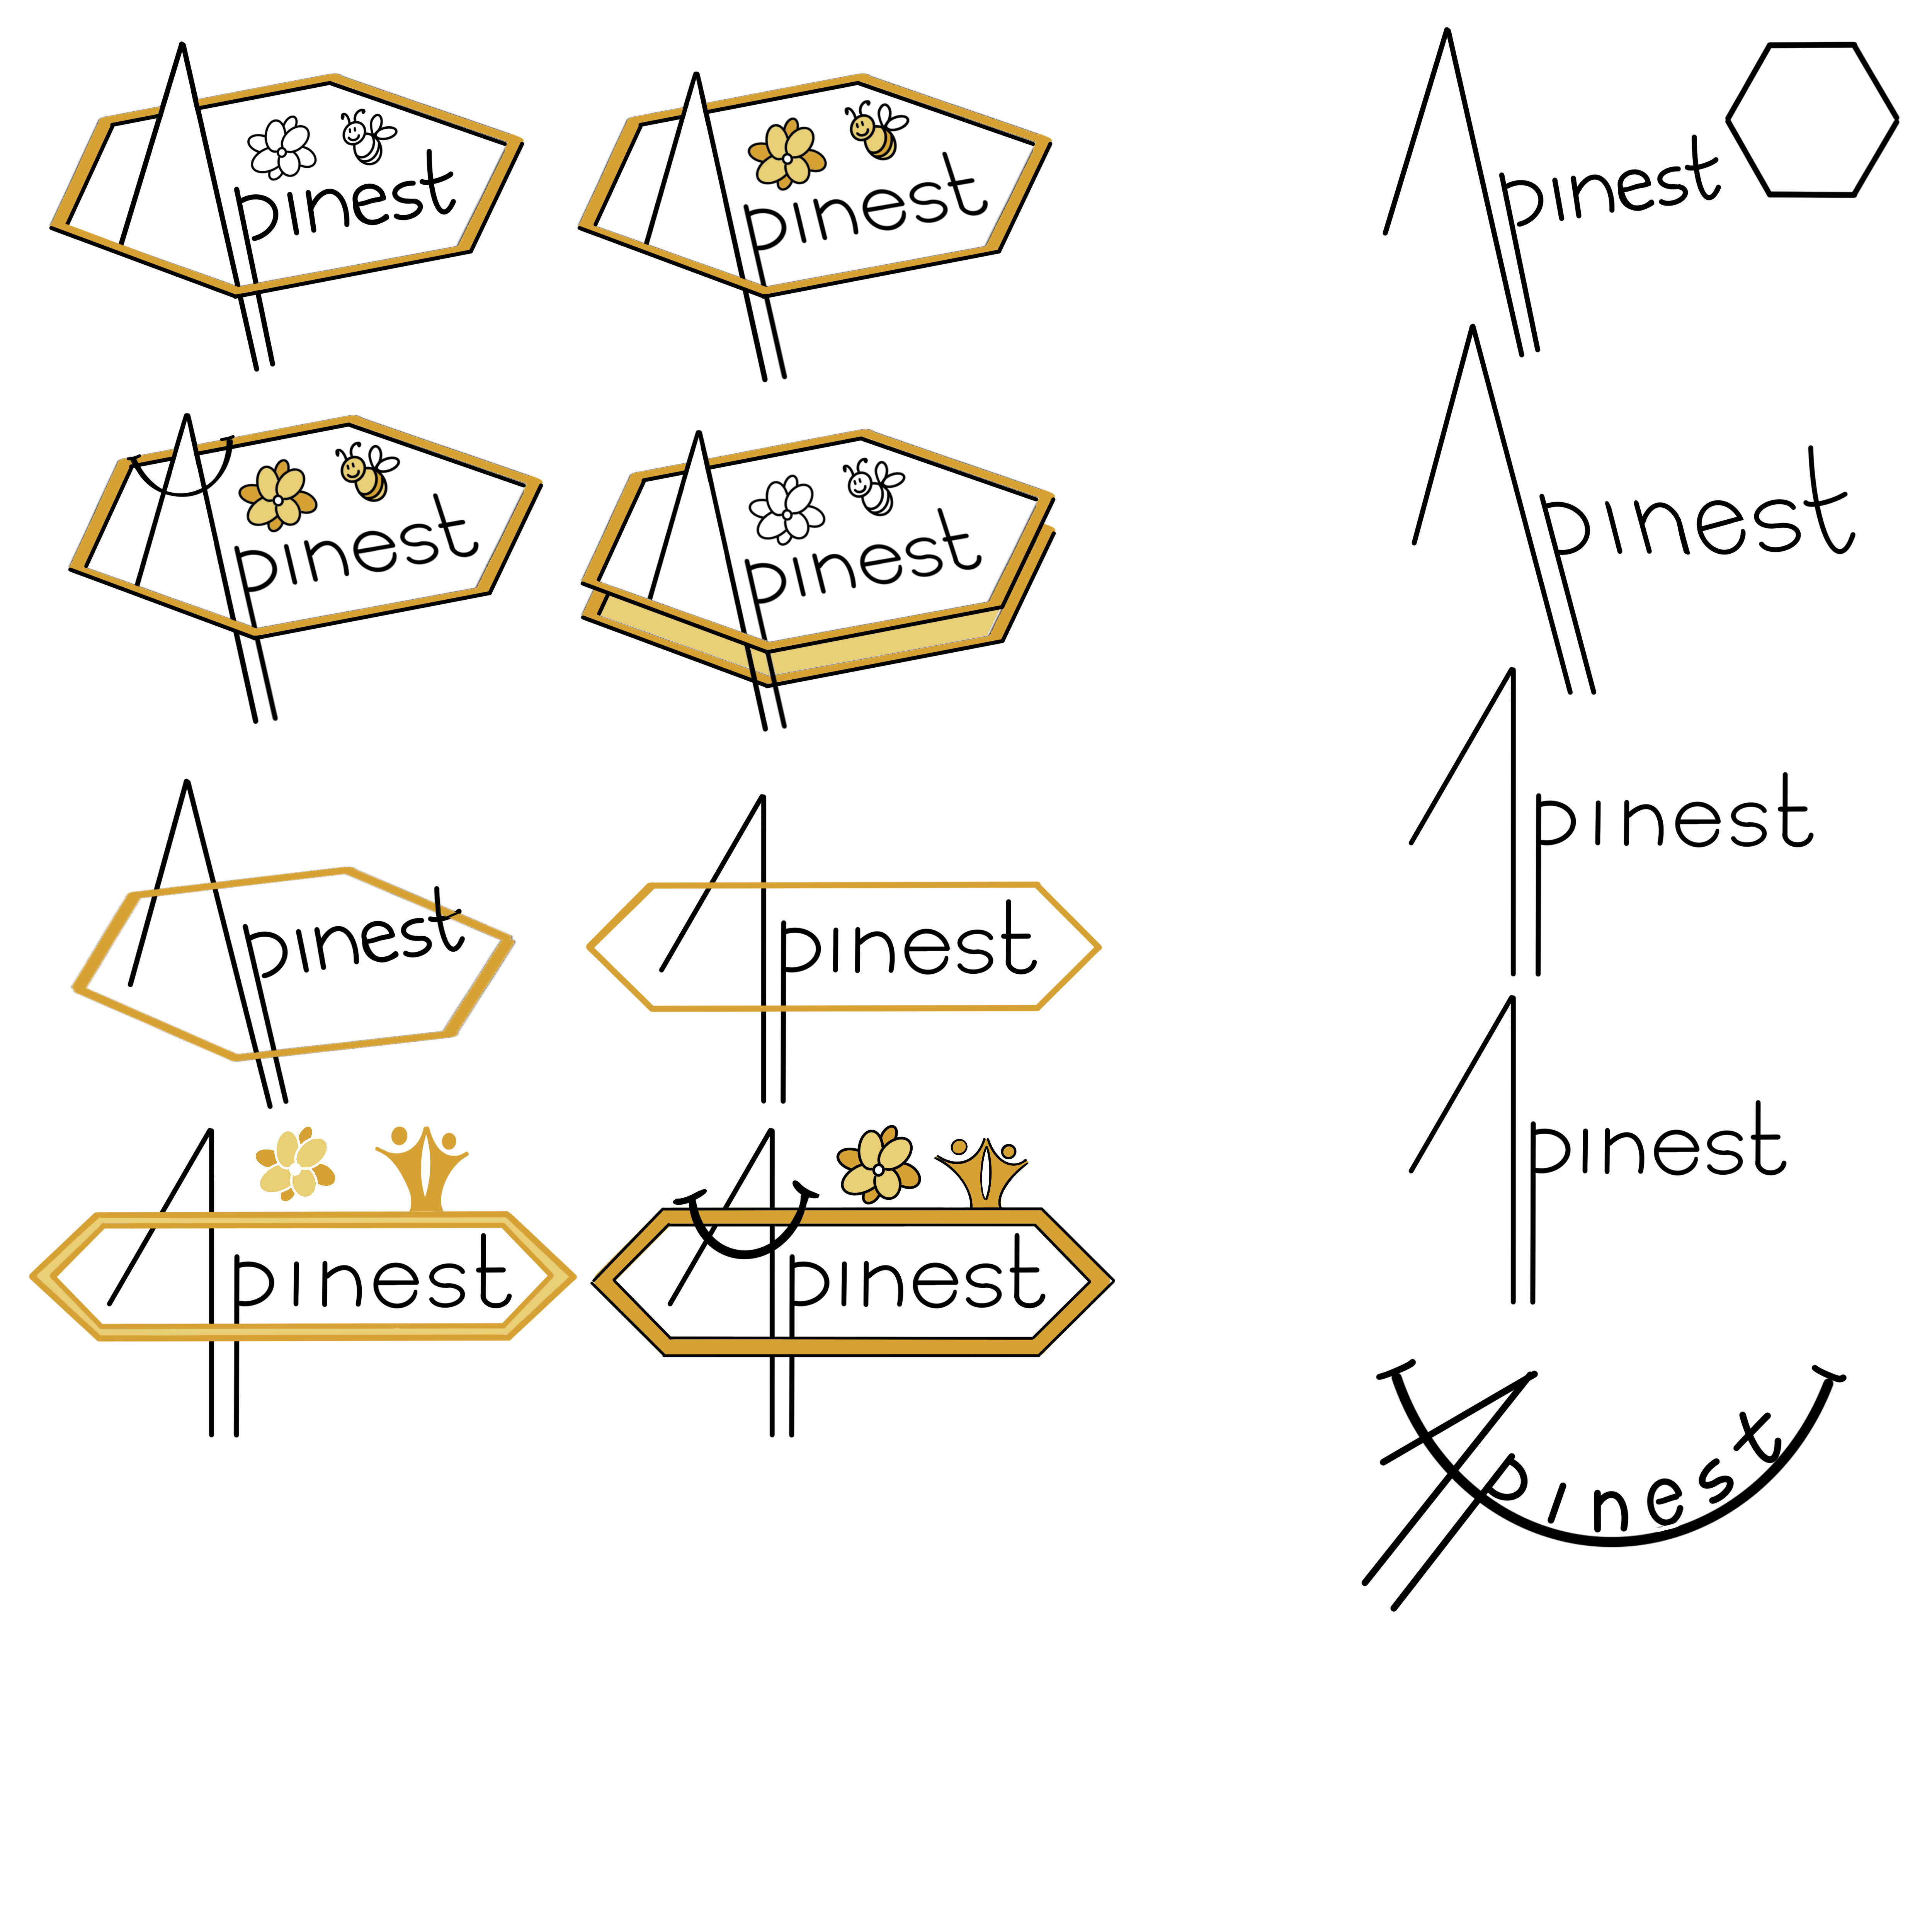 Apinest
Apinest
Apinest
Apinest
Apinest
Apinest
Apinest
Apinest
Apinest
Apinest
Apinest
Apinest
Apinest